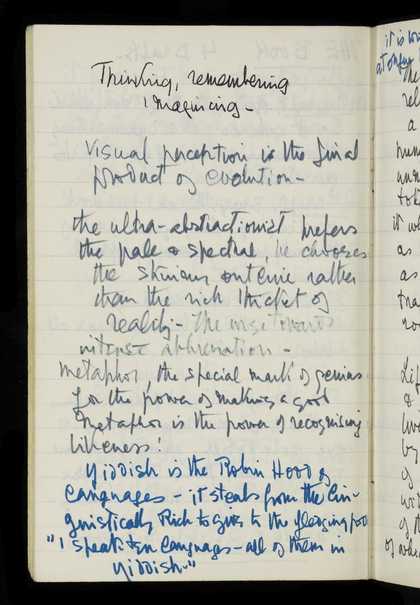 Thinking, remembering
imagining -
Visual perception is the final
product of evolution -
the ultra-abstractionist prefers
the pale & spectral, he chooses
the skinny outline rather
than the rich thicket of
reality - The urge towards
intense abbreviation -
Metaphor, the special mark of genius
for the power of making a good
metaphor is the power of recognising
likeness!
Yiddish is the Robin Hood of
languages - it steals from the lin-
guistically Rich to give to the fledging poor
"I speak ten languages - all of them in
Yiddish"